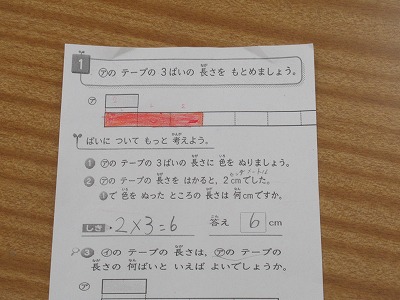 1 ㋐の テープの 3ばいの 長さを もとめましょう。
㋐
ばいに ついて もっと 考えよう。
❶ ㋐の テープの 3ばいの 長さに 色を ぬりましょう。
❷ ㋐の テープの 長さを はかると、2cmでした。
❶で 色を ぬった ところの 長さは 何cmですか。
しき 2×3=6 答え 6 cm
❸ ㋑の テープの 長さは、㋐の テープの
長さの 何ばいと いえば よいでしょうか。
㋐